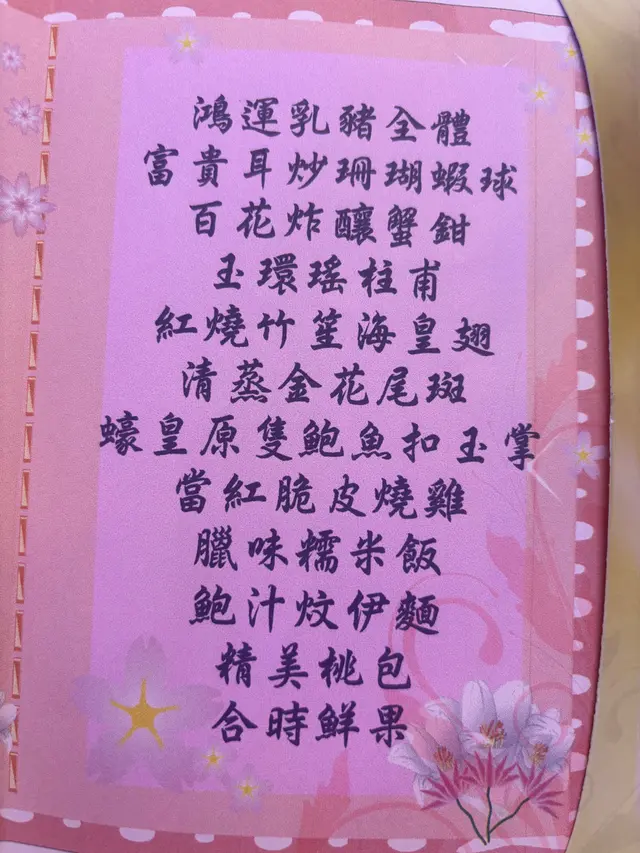 鴻運乳豬全體
富貴耳炒珊瑚蝦球
百花炸釀蟹鉗
玉環瑤柱甫
紅燒竹笙海皇翅
清蒸金花尾斑
蠔皇原隻鮑魚扣玉掌
當紅脆皮燒雞
臘味糯米飯
鮑汁炆伊麵
精美桃包
合時鮮果